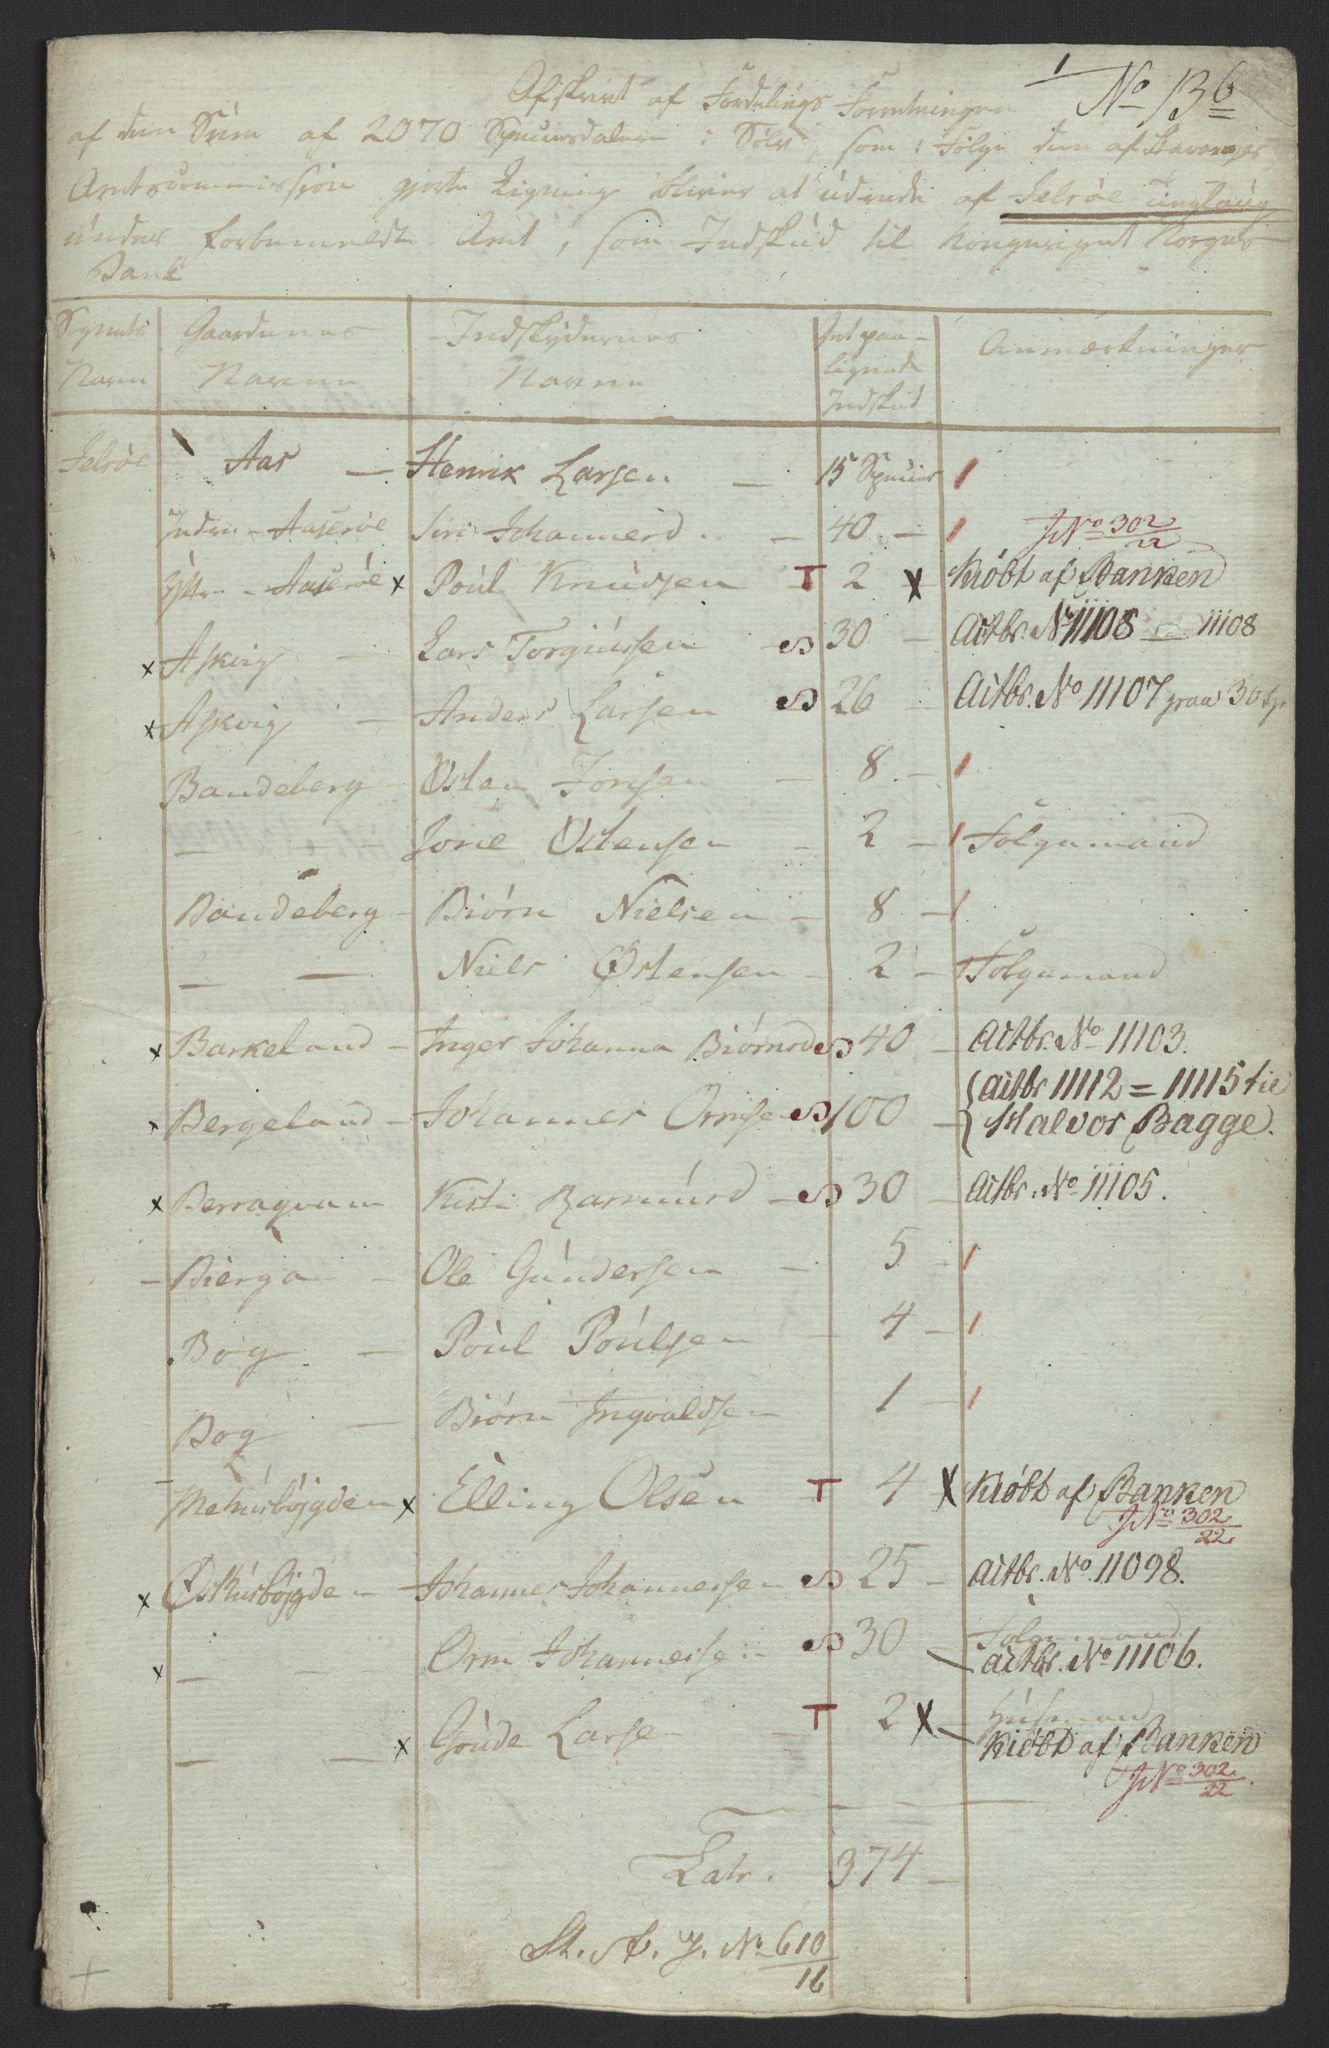 1 No 136
Afskrivt af Fordelings Forretningen
af den Sum af 2070 Speciesdaler i Sølv, som i Følge den af Stavanger
Amtscommission giorte Ligning bliver at udrede af Jelsøe Tinglaug
under forbemeldte Amt, som Indskud til Kongeriget Norges
Bank
Sognets Navn Gaardenes Navne Indskydernes Navne Det paalignede Indskud Anmærkninger
Jelsøe Aas - Henrik Larsen - 15 Species 1
Indre - Aaserøe Siri Johannesd. - 40 - 1 JNo 302/22
Yttre - Aaserøe x Poul Knudsen T 2 x Kiøbt af Banken
x Askvig - Lars Torgiussen S 30 - Actbr. No 11108 11108
x Askvig - Anders Larsen S 26 - Actbr. No 11107 paa 30 Sp
Bandeberg Østen Jonsen - 8 - 1
- - Jone Østensen - 2 - 1 Følgemand
Bandeberg - Biørn Nielsen - 8 - 1
- - Niels Østensen - 2 - 1 Følgemand
x Barkeland - Inger Johanna Biørnsd S 40 - Actbr. No 11103.
x Bergeland - Johannes Ormsen S 100 - { Actbr 11112 = 11115 til
Halvor Bagge.
x Berraqvam Kisti Rasmusd - S 30 - Actbr. No 11105.
- Bierga - Ole Gundersen - 5 - 1
Bog - Poul Poulsen - 4 - 1
Bog - Biørn Ingvaldsen 1 - 1
Mehusbøjgden x Elling Olsen - T 4 x Kiøbt af Banken
JNo 302/22
x Østhusbøjgden - Johannes Johannessen S 25 - Actbr. No 11098.
x - - Orm Johannessen S 30 Følgemand
- Actbr. No 11106.
- - x Goude Larsen - T 2 x - Husmand
Kiøbt af Banken
JNo 302/22
Latr. 374 -
St. sb. J. No 610/16